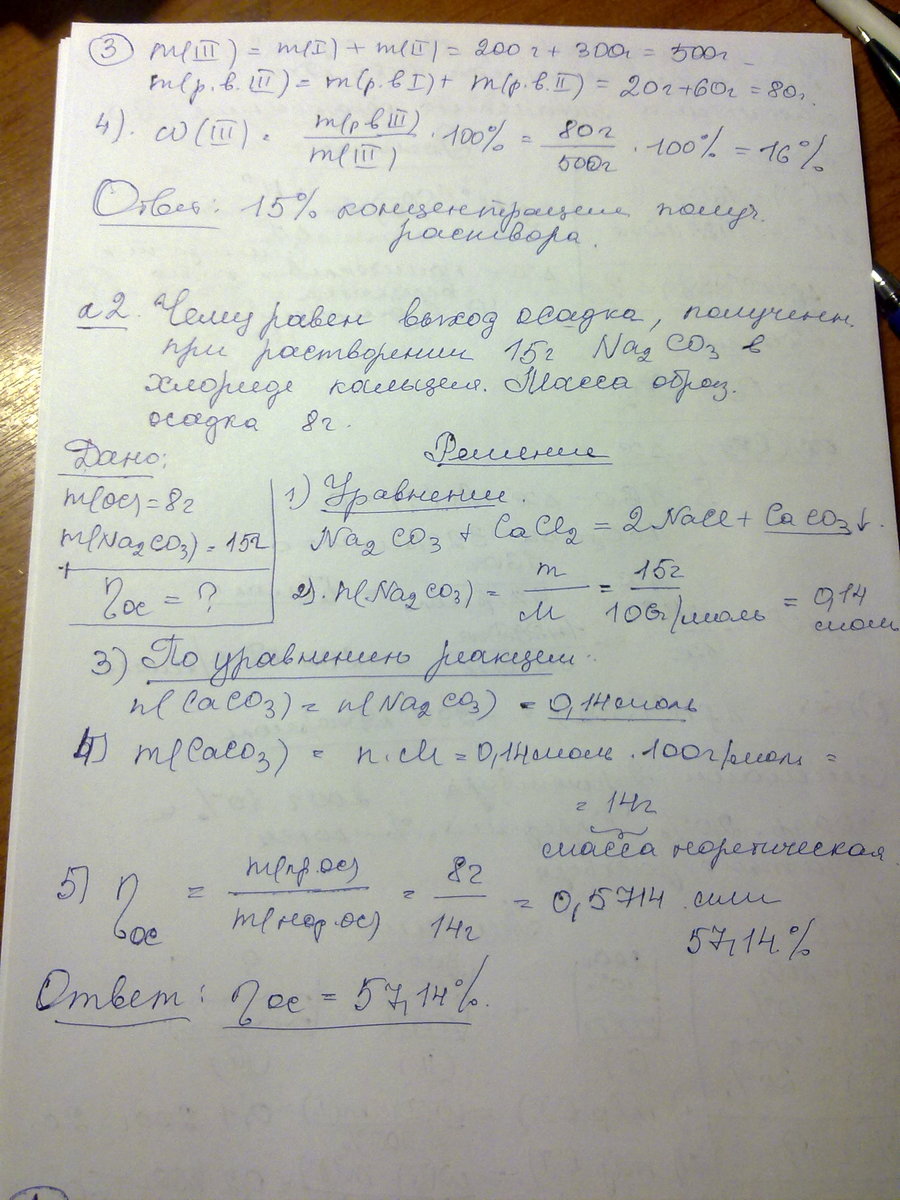 ③ m(III) = m(I) + m(II) = 200г + 300г = 500г
m(р.в.III) = m(р.вI) + m(р.в.II) = 20г+60г = 80г.
4). ω(III) = m(рвIII)/m(III) · 100% = 80г/500г · 100% = 16%
Ответ: 15% концентрация получ.
раствора.
№2. Чему равен выход осадка, полученн.
при растворении 15г Na₂CO₃ в
хлориде кальция. Масса образ.
осадка 8г.
Дано:
Решение
m(ос) = 8г
1) Уравнение.
m(Na₂CO₃) = 15г
Na₂CO₃ + CaCl₂ = 2NaCl + CaCO₃↓.
ηос = ?
2). n(Na₂CO₃) = m/M = 15г/106г/моль = 0,14
моль
3) По уравнению реакции.
n(CaCO₃) = n(Na₂CO₃) = 0,14моль
4) m(CaCO₃) = n·M = 0,14моль · 100г/моль =
= 14г
масса теоретическая.
5) ηос = m(пр.ос)/m(теор.ос) = 8г/14г = 0,5714 или
57,14%
Ответ: ηос = 57,14%.